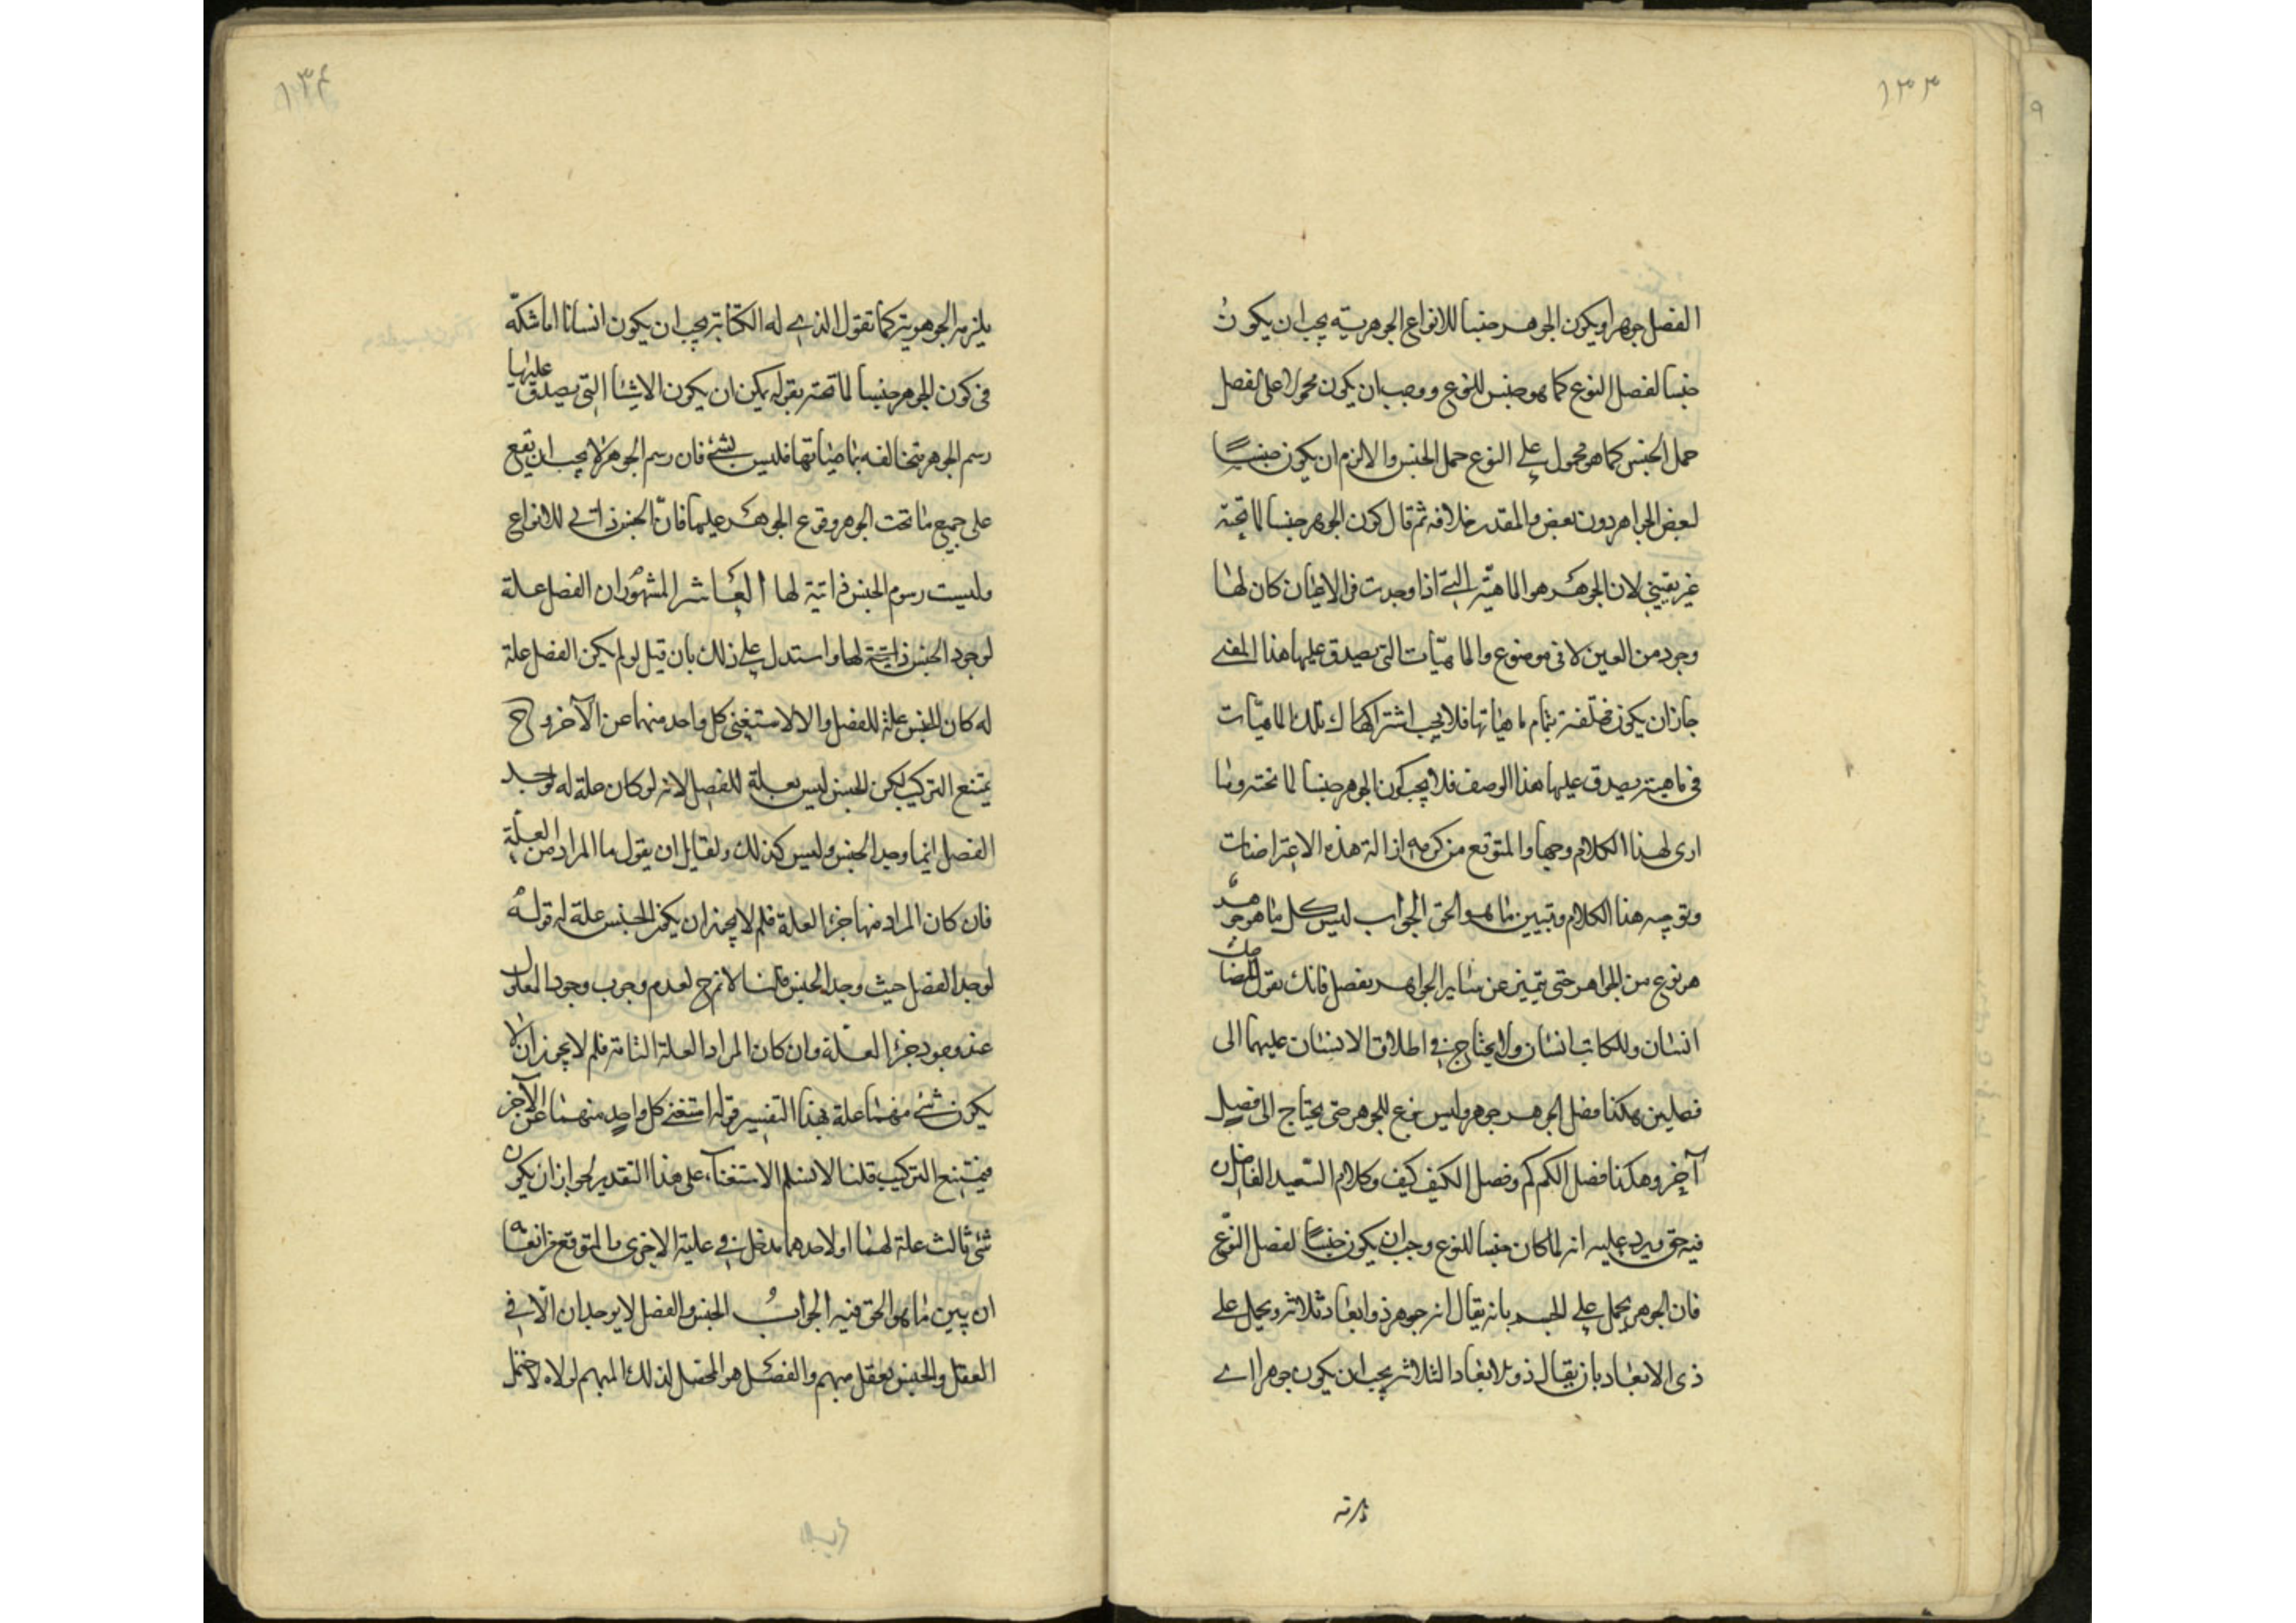 ١٣٣
الفصل جوهرا ويكون الجوهر جنسا للانواع الجوهرية يجب ان يكون
جنسا لفصل النوع كما هو جنس للنوع ووجب ان يكون محمولا على الفصل
حمل الجنس كما هو محمول على النوع حمل الجنس والا لزم ان يكون جنسًا
لبعض الجواهر دون بعض والمقدر خلافه ثم قال كون الجوهر جنسا لما تحته
غير يقيني لان الجوهر هو الماهيّة التى اذا وجدت فى الاعيان كان لها
وجود من العين لا فى موضوع والماهيّات التى يصدق عليها هذا المعنى
جاز ان يكون مختلفة بتمام ماهياتها فلا يجب اشتراك تلك الماهيّات
فى ماهية يصدق عليها هذا الوصف فلا يجب كون الجوهر جنسا لما تحته وما
ارى لهذا الكلام وجها والمتوقع من كرمه ازالة هذه الاعتراضات
وتوجيه هذا الكلام وتبيين ما هو الحق الجواب ليس كل ما هو جوهر
هو نوع من الجواهر حتى يتميز عن ساير الجواهر بفصل فانك تقول للضاحك
انسان وللكاتب انسان ولا يحتاج فى اطلاق الانسان عليهما الى
فصلين هكذا فصل الجوهر جوهر وليس نوع للجوهر حتى يحتاج الى فصل
آخر وهكذا فصل الكم كم وفصل الكيف كيف وكلام السّعيد الفاضل
فيه حق ويرد عليه انه لما كان جنسا للنوع وجب ان يكون جنسًا لفصل النّوع
فان الجوهر يحمل على الجسم بانه يقال انه جوهر ذو ابعاد ثلاثة ويحمل على
ذى الابعاد بان يقال ذو الابعاد الثلاثة يجب ان يكون جوهرا اى
١٣٤
يلزمه الجوهرية كما تقول الذى له الكتابة يجب ان يكون انسانا اما شكّه
فى كون الجوهر جنسا لما تحته بقوله يمكن ان يكون الاشيا التى يصدق عليها
رسم الجوهر متخالفه بماهياتها فليس بشئ فان رسم الجوهر لا يجب ان يقع
على جميع ما تحت الجوهر وقوع الجوهر عليها فانّ الجنس ذاتى للانواع
وليست رسوم الجنس ذاتية لها العاشر المشهور ان الفصل علة
لوجود الجنس ذاتية لها واستدل على ذلك بان قيل لو لم يكن الفصل علة
له كان الجنس علة للفصل والا لاستغنى كل واحد منهما عن الآخر وح
يمتنع التركيب لكن الجنس ليس بعلة للفصل لانه لو كان علة له لوجد
الفصل اينما وجد الجنس وليس كذلك ولقايل ان يقول ما المراد من العلّة
فان كان المراد منها جزء العلة فلم لا يجوز ان يكون الجنس علة له قوله
لوجد الفصل حيث وجد الجنس قلنا لا نم ح لعدم وجوب وجود المعلول
عند وجود جزء العلّة وان كان المراد العلة التامة فلم لا يجوز ان لا
يكون شئ منهما علة بهذا التفسير قوله استغنى كل واحد منهما عن الآخر
فيمتنع التركيب قلنا لا نسلم الاستغناء على هذا التقدير لجواز ان يكون
شئ ثالث علة لهما او لاحدهما مدخل فى علية الاخرى والمتوقع من انعامه
ان يبين ما هو الحق فيه الجواب الجنس والفصل لا يوجدان الّا فى
العقل والجنس يعقل مبهم والفصل هو المحصل لذلك المبهم لولاه لاحتمل